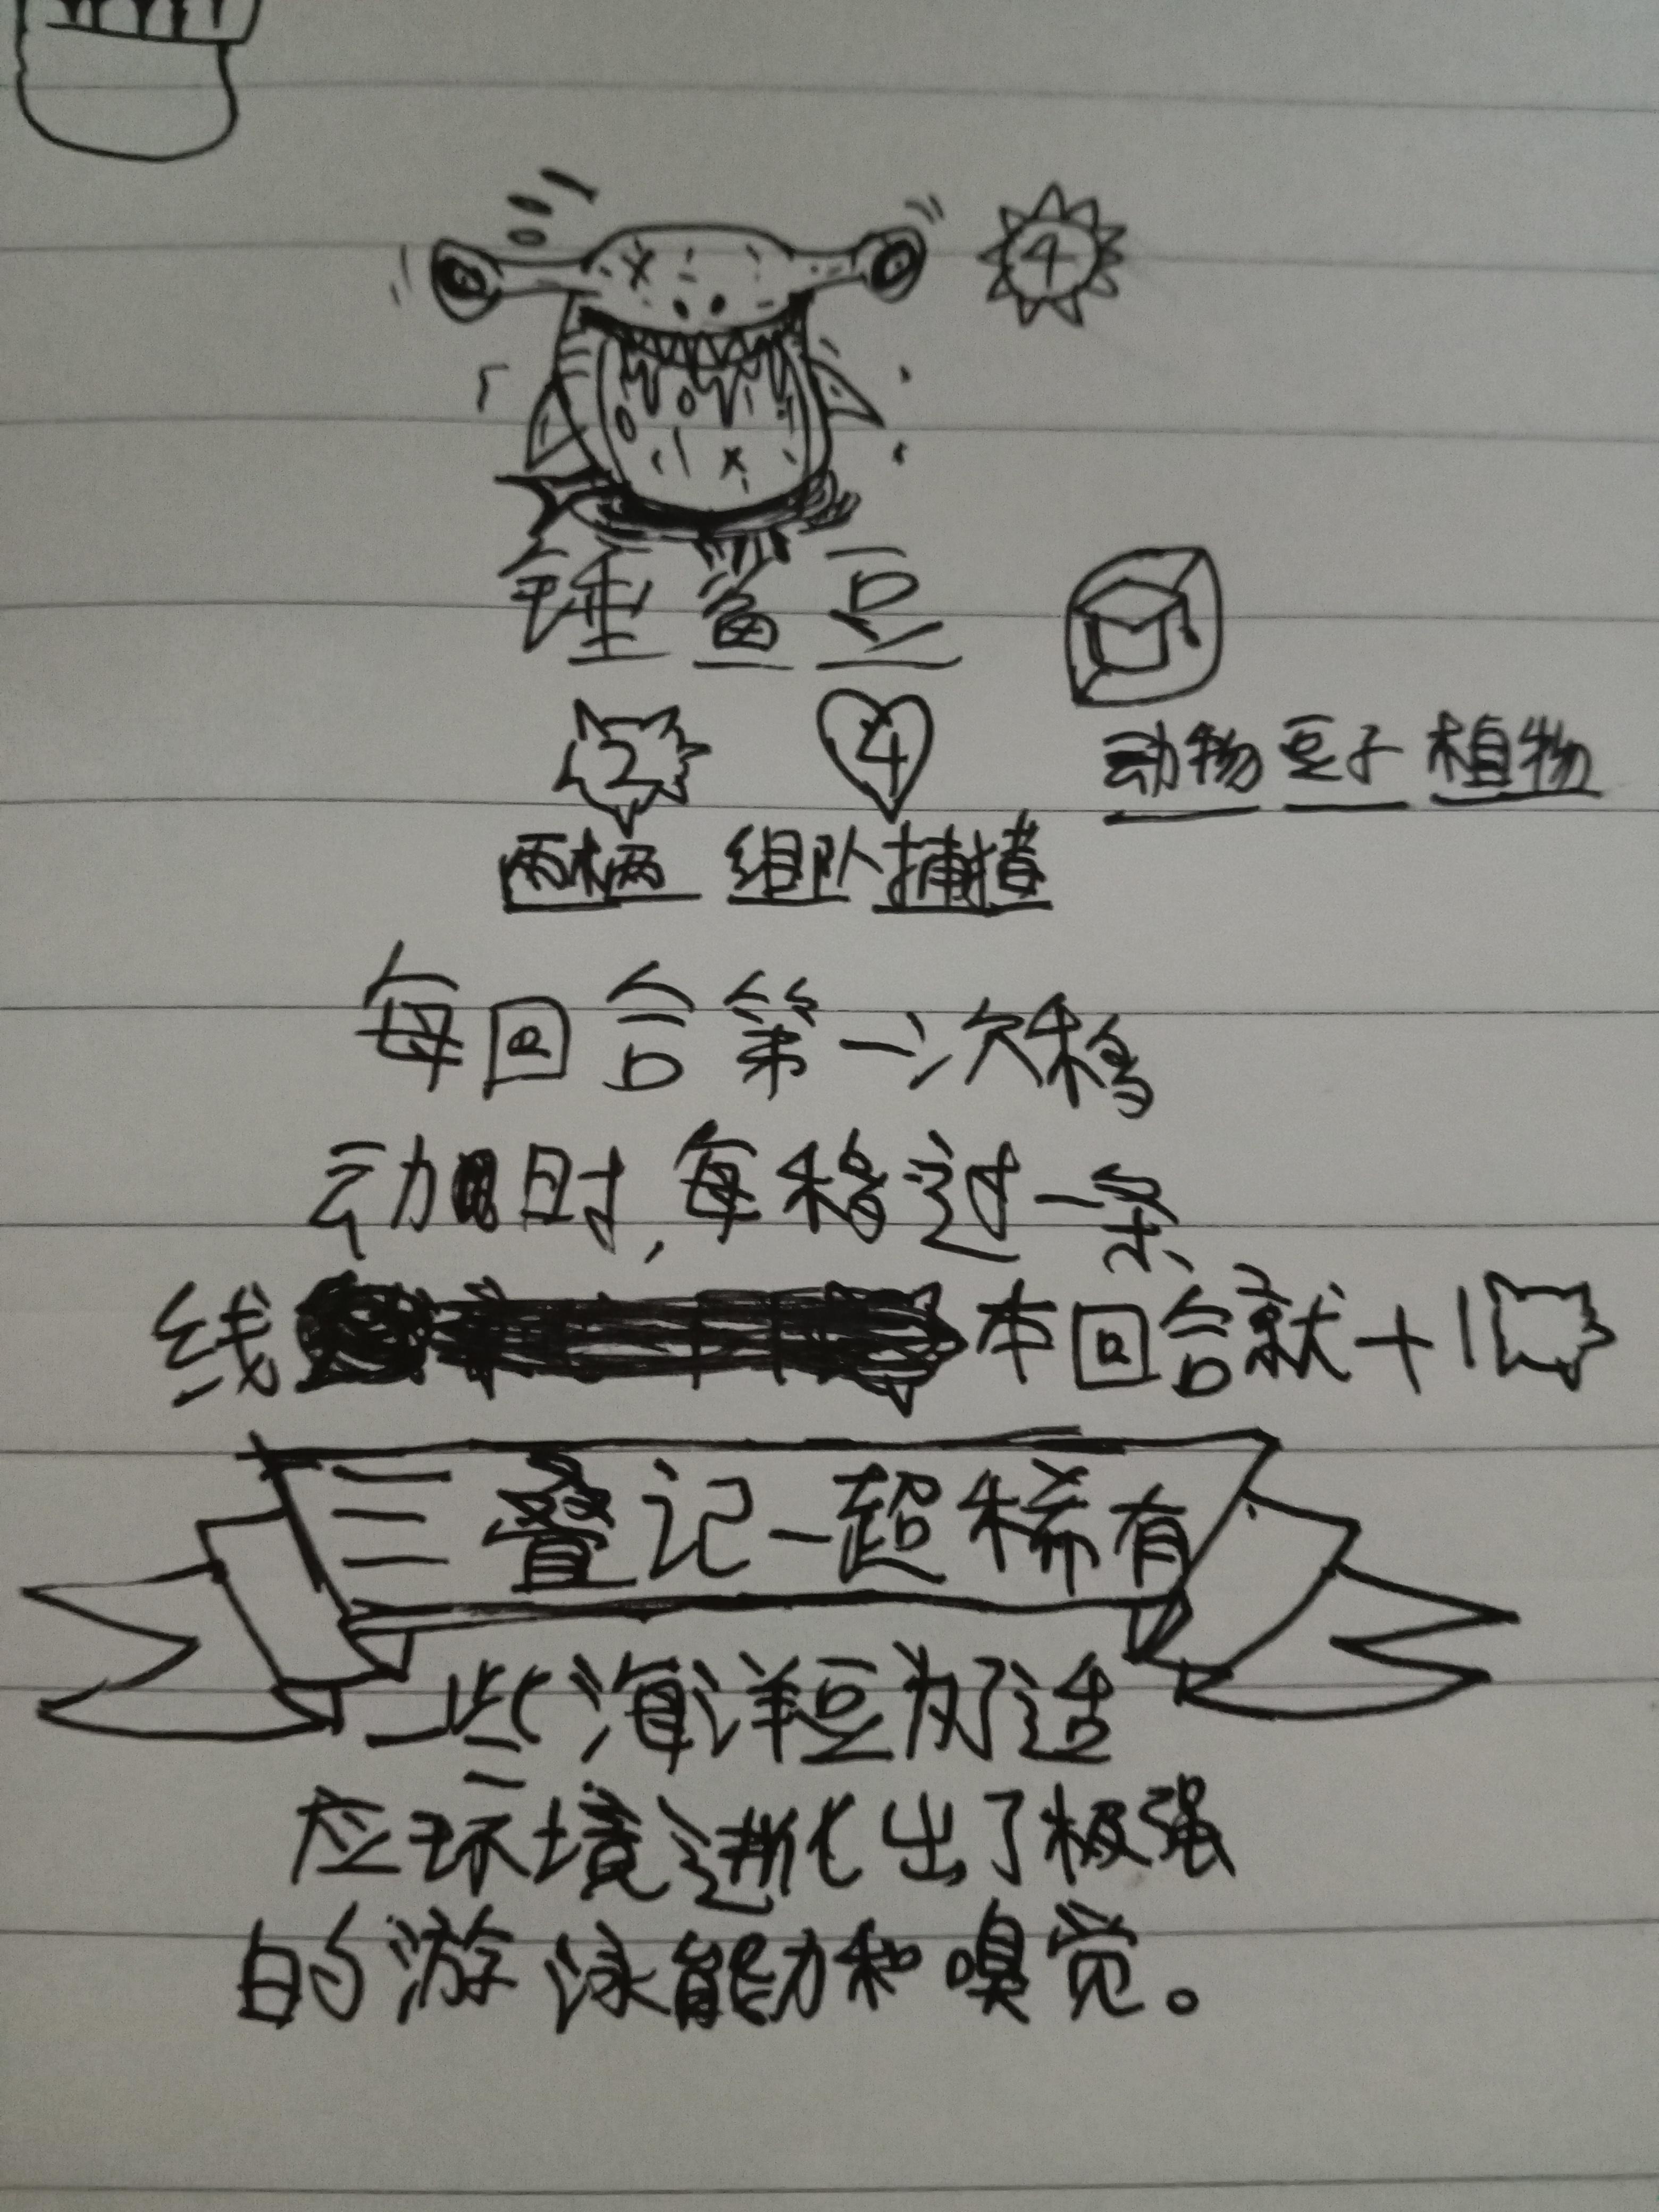 4
锤鲨豆
2 4
动物 豆子 植物
两栖 组队 捕猎
每回合第一次移
动时,每移过一条
线本回合就+1
三叠记-超稀有
一些海洋豆为了适
应环境进化出了极强
的游泳能力和嗅觉。